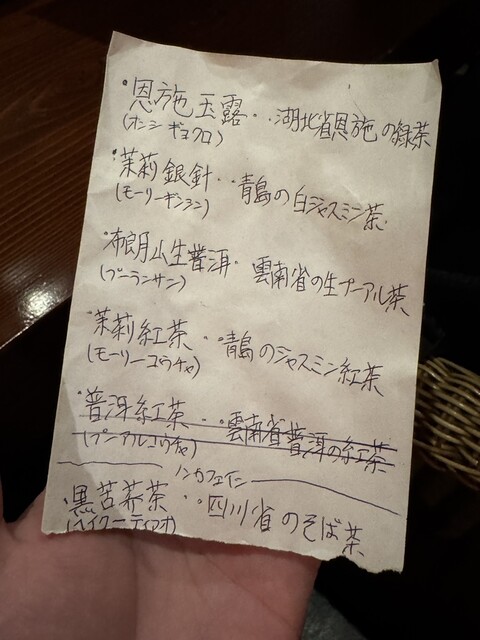 ・恩施玉露・・湖北省恩施の緑茶
(オンシギョクロ)
・茉莉銀針・・青島の白ジャスミン茶
(モーリーギンシン)
・布朗山生普洱・・雲南省の生プーアル茶
(プーランサン)
・茉莉紅茶・・青島のジャスミン紅茶
(モーリーコウチャ)
・普洱紅茶・・雲南省普洱の紅茶
(プーアルコウチャ)
ノンカフェイン
・黒苦荞茶・・四川省のそば茶
(ヘイクーティアオ)